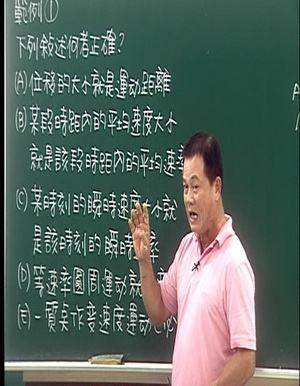 範例①
下列敘述何者正確？
(A) 位移的大小就是運動距離
(B) 某段時距內的平均速度大小
就是該段時距內的平均速率
(C) 某時刻的瞬時速度大小就
是該時刻的瞬時 率
(D) 等速率圓周運動就
(E) 一質点作変速度運動